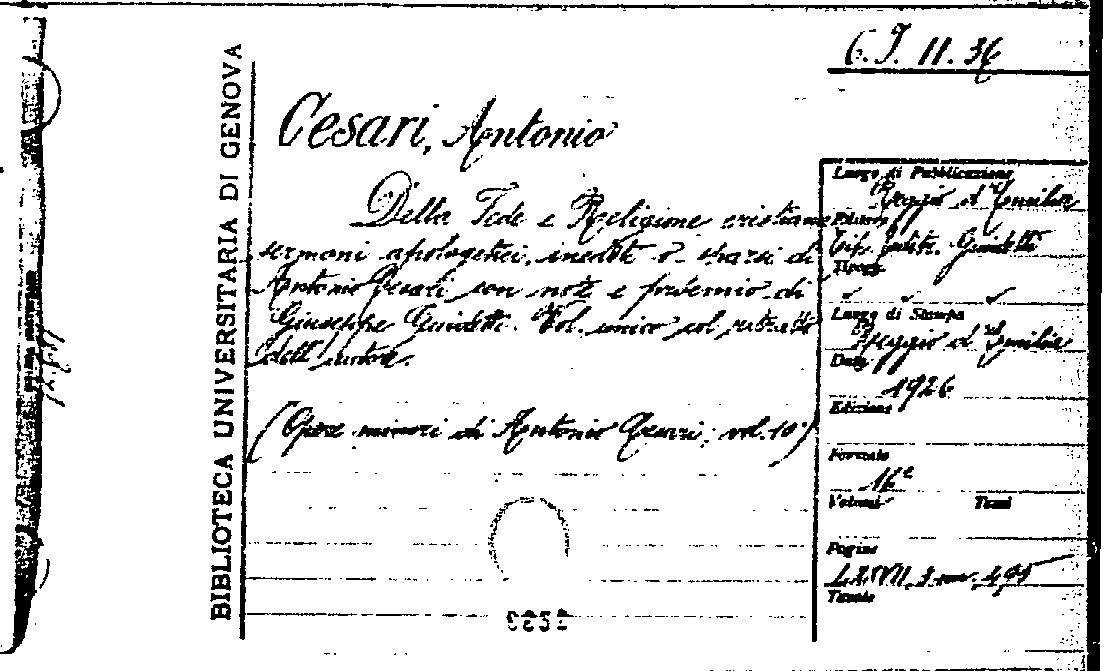 6.I.11.36
BIBLIOTECA UNIVERSITARIA DI GENOVA
Cesari, Antonio
Della Fede e Religione cristiana
sermoni apologetici, inediti o sparsi di
Antonio Cesari con note e proemio di
Giuseppe Guidetti. Vol. unico col ritratto
dell'autore.
(Opere minori di Antonio Cesari; vol. 10°)
Luogo di Pubblicazione
Reggio d'Emilia
Editore
Tip. editr. Guidetti
Tipogr.
Luogo di Stampa
Reggio d'Emilia
Data
1926
Edizione
Formato
16°
Volumi Tomi
Pagine
LXXVII, 495
Tavole